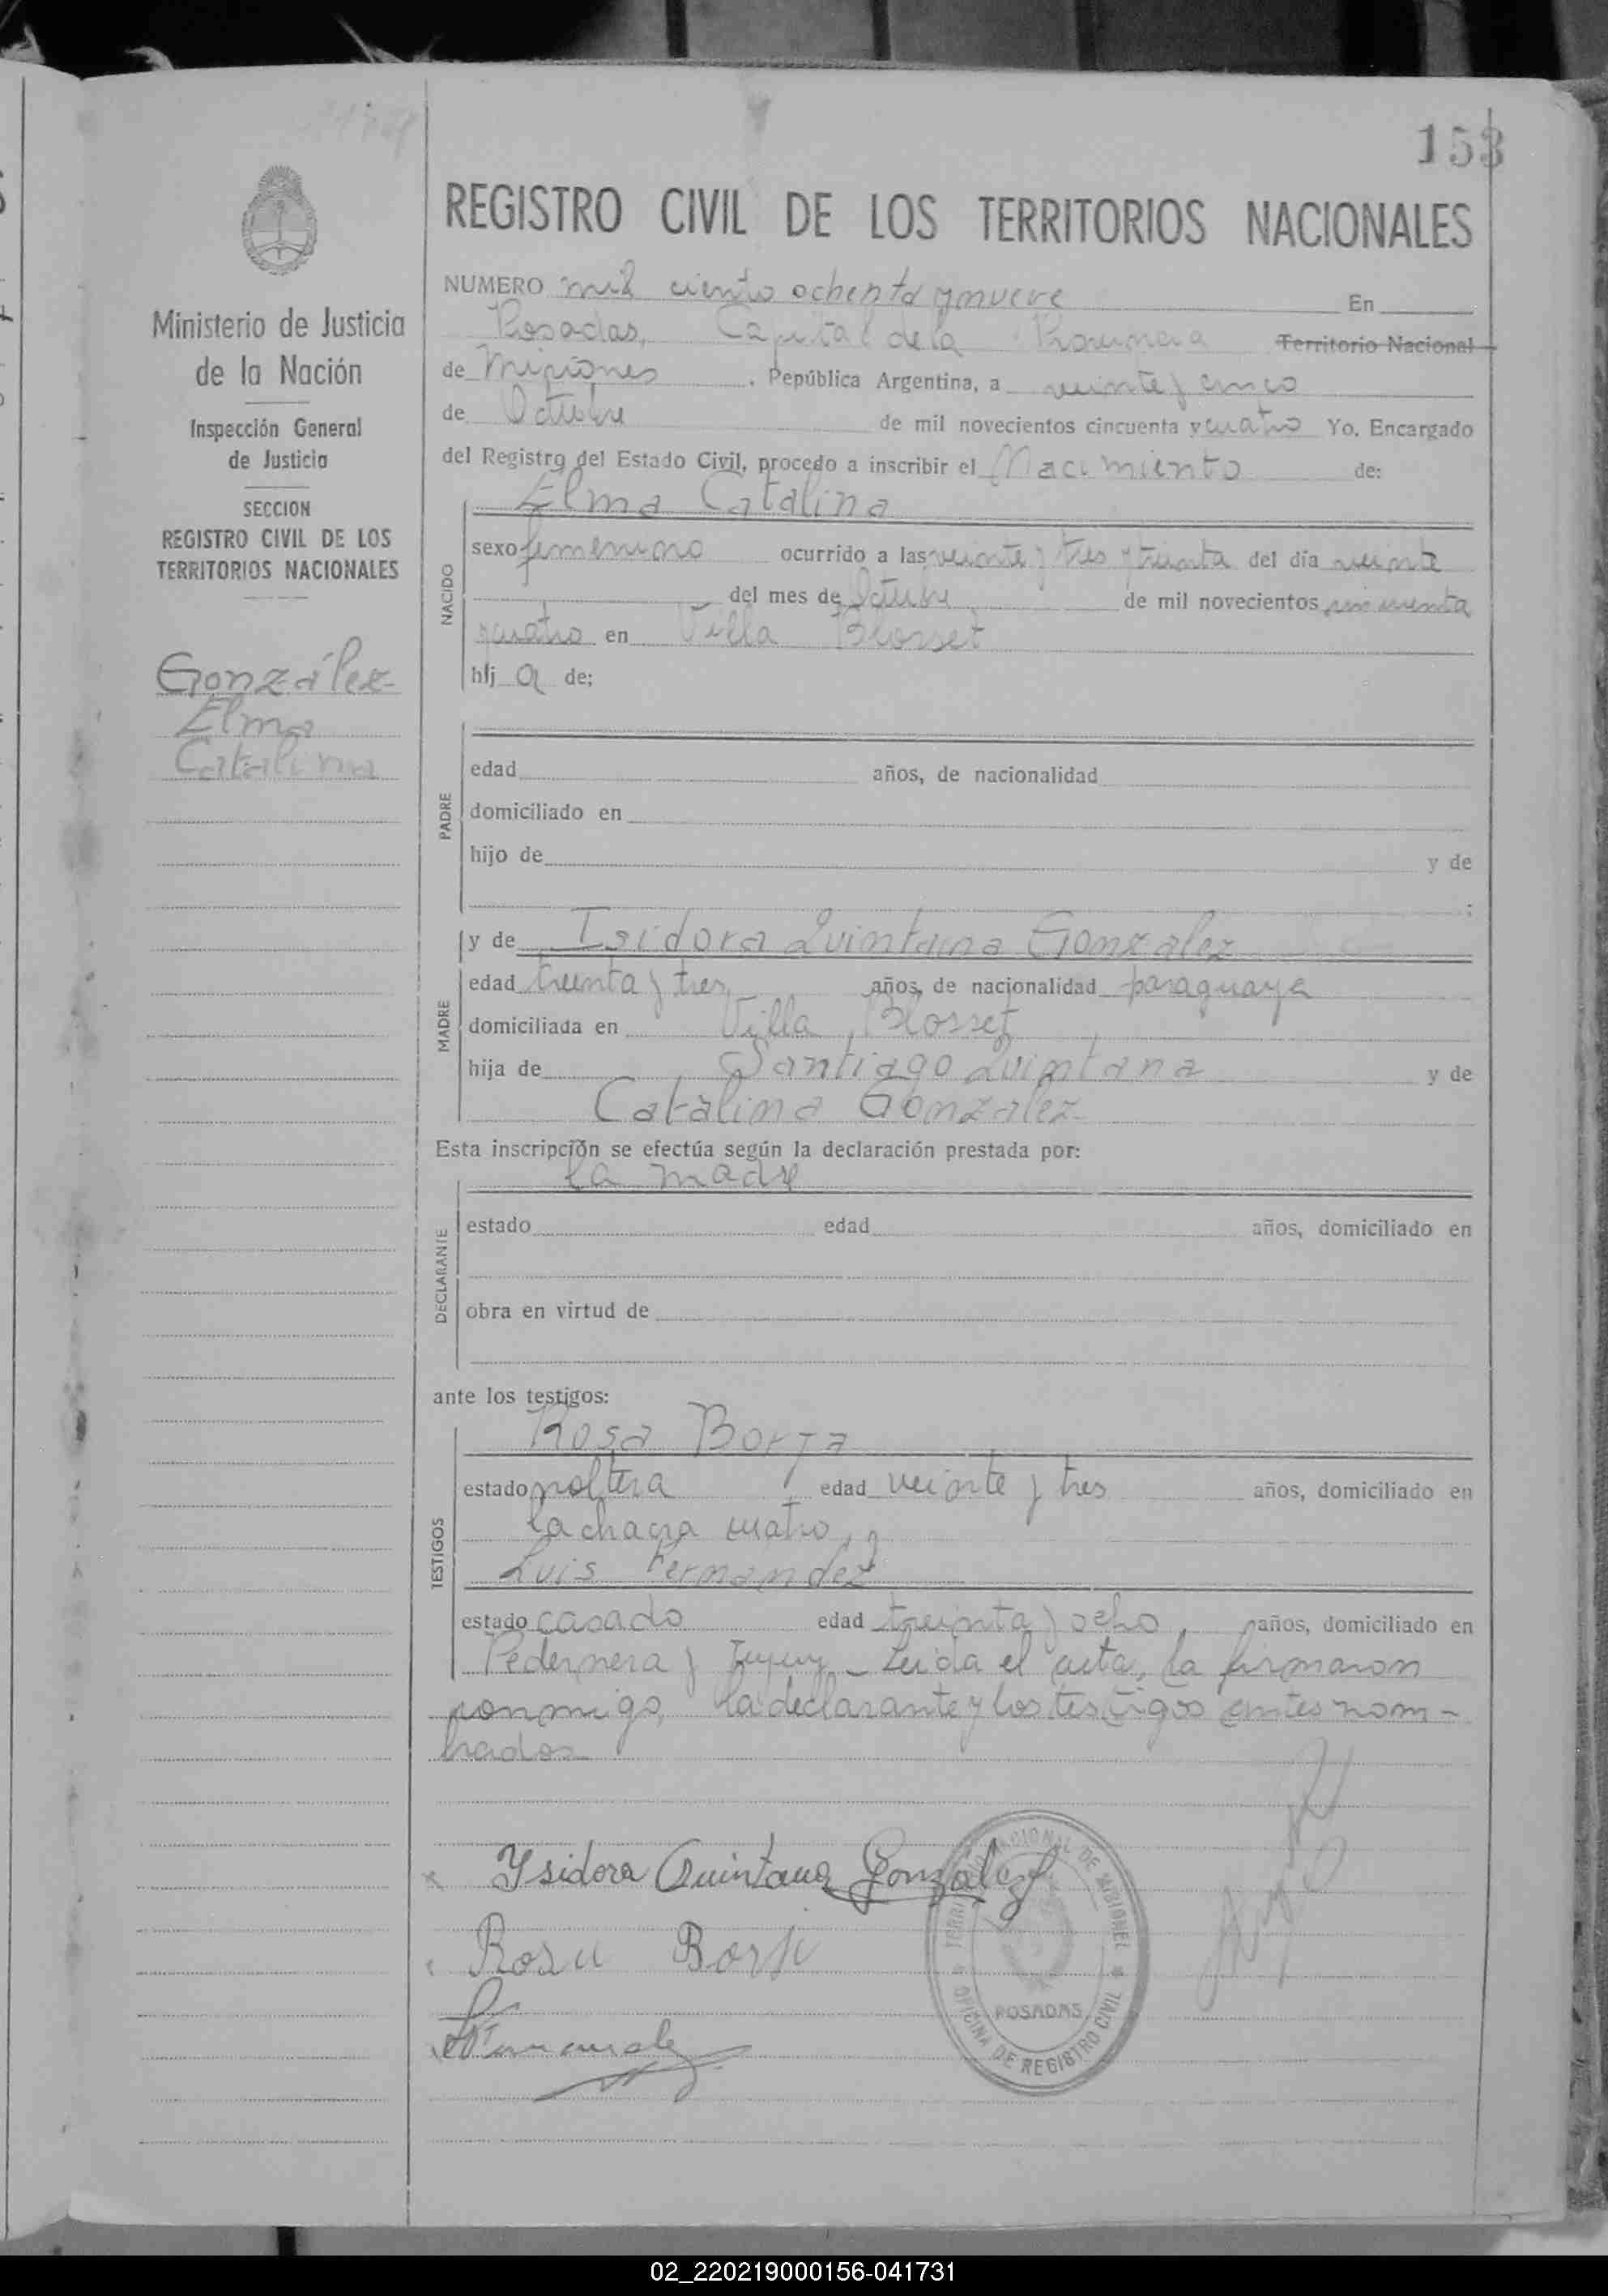 153
REGISTRO CIVIL DE LOS TERRITORIOS NACIONALES
Ministerio de Justicia
de la Nación
Inspección General
de Justicia
SECCION
REGISTRO CIVIL DE LOS
TERRITORIOS NACIONALES
González
Elma
Catalina
NUMERO mil ciento ochenta y nueve En
Posadas, Capital de la Provincia Territorio Nacional
de Misiones, República Argentina, a veinte y cinco
de Octubre de mil novecientos cincuenta y cuatro Yo, Encargado
del Registro del Estado Civil, procedo a inscribir el Nacimiento de:
NACIDO
Elma Catalina
sexo femenino ocurrido a las veinte y tres y treinta del día veinte
del mes de Octubre de mil novecientos cincuenta
y cuatro en Villa Blosset
hij a de:
PADRE
edad años, de nacionalidad
domiciliado en
hijo de y de
:
MADRE
y de Isidora Quintana Gonzalez
edad treinta y tres años, de nacionalidad paraguaya
domiciliada en Villa Blosset
hija de Santiago Quintana y de
Catalina Gonzalez
Esta inscripción se efectúa según la declaración prestada por:
DECLARANTE
la madre
estado edad años, domiciliado en
obra en virtud de
ante los testigos:
TESTIGOS
Rosa Borja
estado soltera edad veinte y tres años, domiciliado en
la chacra cuatro, y
Luis Fernandez
estado casado edad treinta y ocho, años, domiciliado en
Pedernera y Jujuy - Leida el acta, la firmaron
conmigo, la declarante y los testigos antes nom-
brados
Ysidora Quintana Gonzalez
Rosa Borja
TERRITORIO NACIONAL DE MISIONES
POSADAS
OFICINA DE REGISTRO CIVIL
02_220219000156-041731